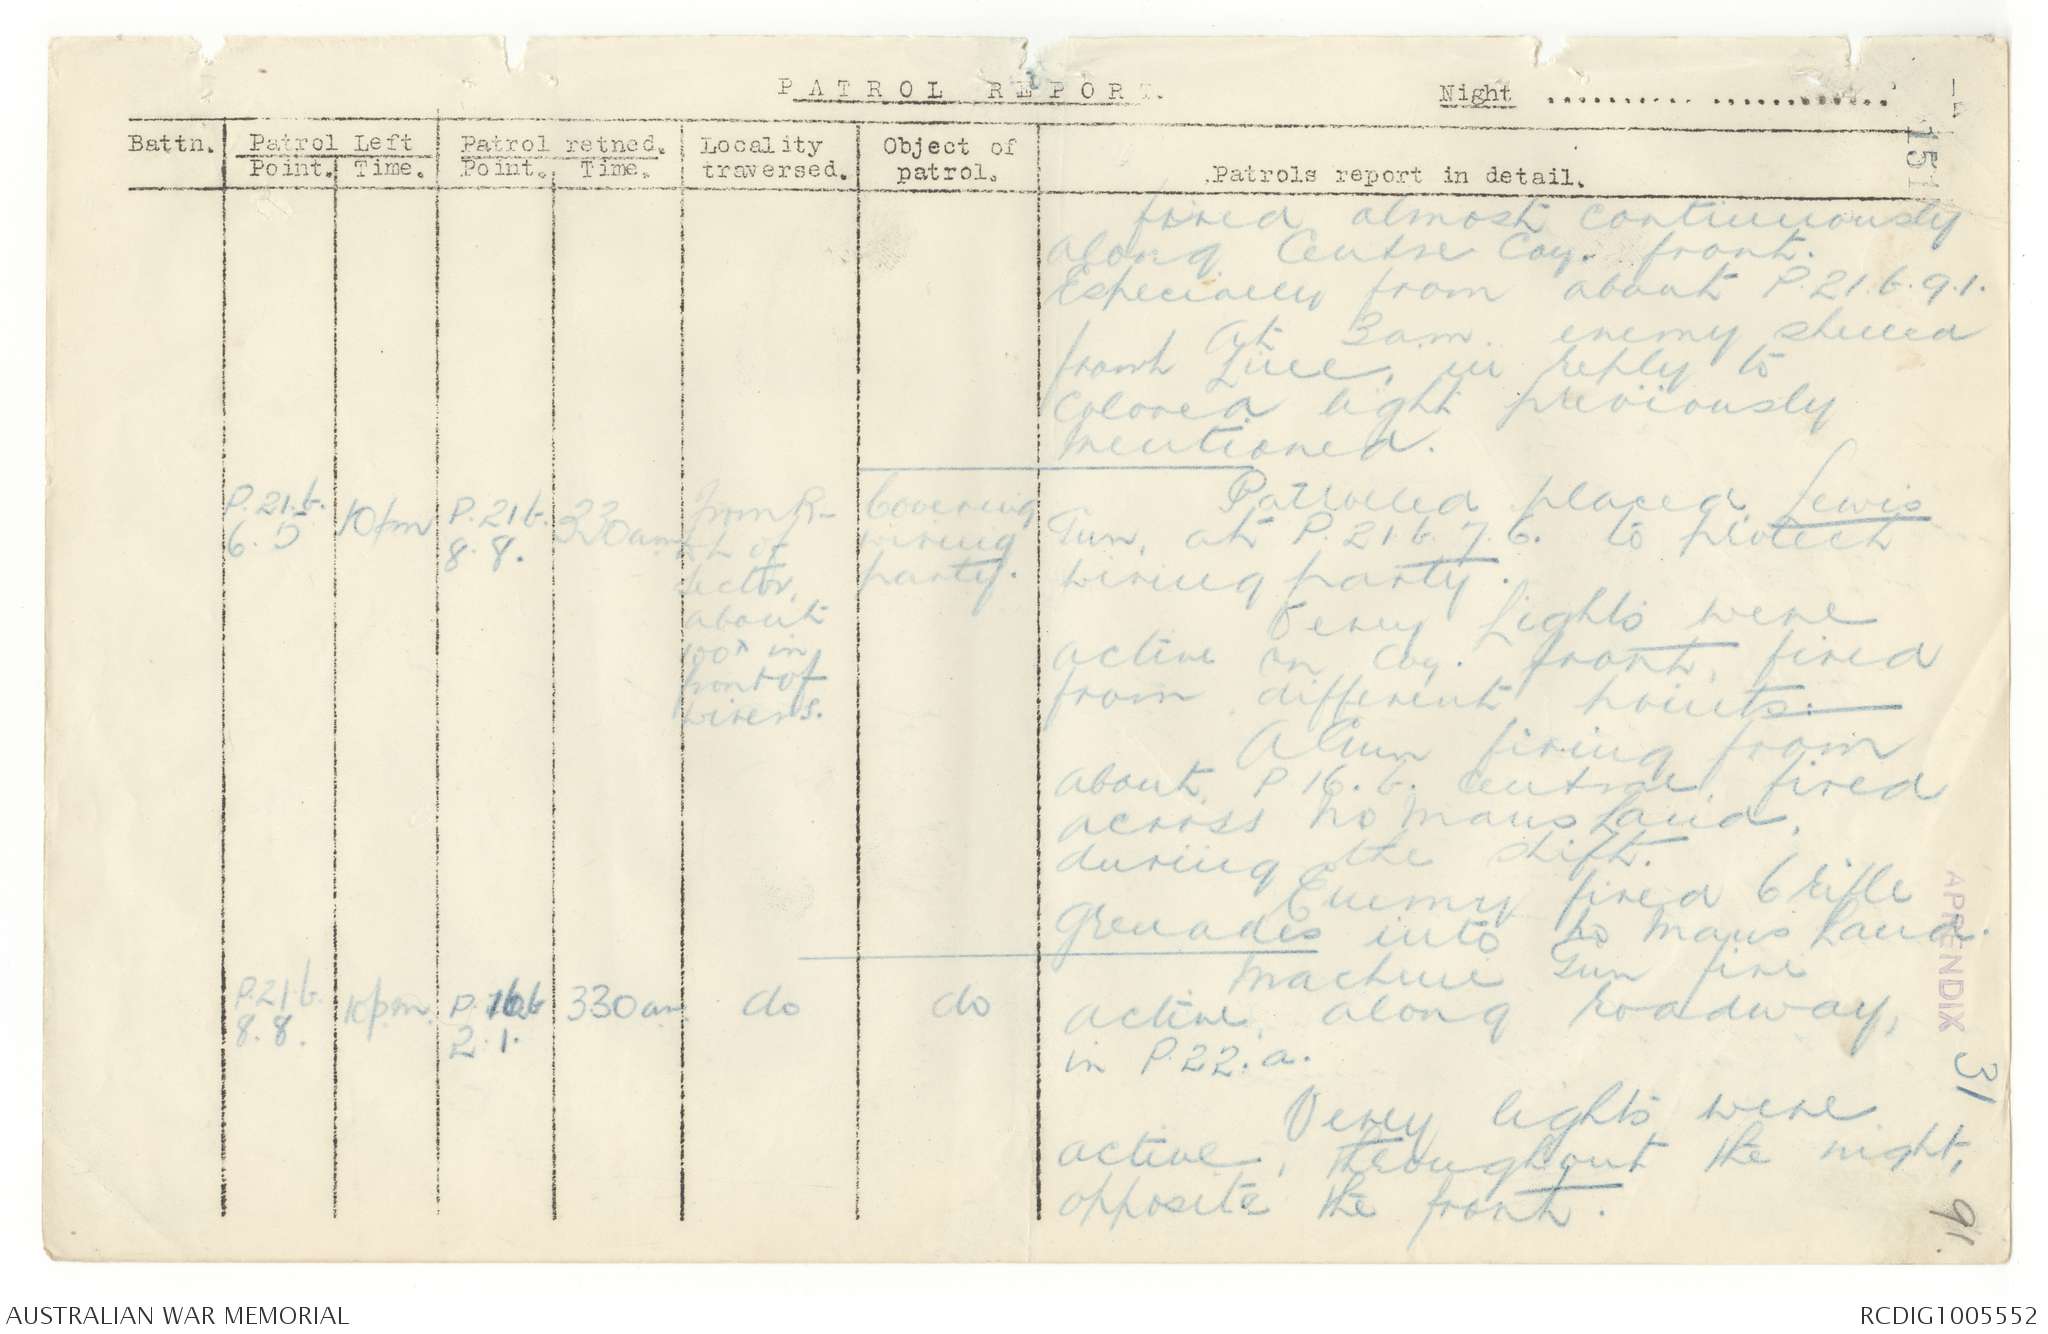 PATROL REPORT.
Night .......... ............
151
Battn. Patrol Left Point. Time. Patrol retned. Point. Time. Locality traversed. Object of patrol. Patrols report in detail.
fired almost continuously
along Centre Coy. front.
Especially from about P.21.b.9.1.
At 3am. enemy shelled
front Line, in reply to
colored light previously
mentioned.
P.21.b.
6.5
10pm
P.21b.
8.8.
330am
from R-
of
sector,
about
100x in
front of
wirers.
Covering
wiring
party.
Patrolled placed Lewis
Gun, at P.21.b.7.6. to protect
wiring party.
Verey Lights were
active on Coy. front, fired
from different points.
A Gun firing from
about P.16.b. central, fired
across No Mans Land,
during the shift.
Enemy fired 6 rifle
grenades into No Mans Land.
P.21.b.
8.8.
10pm.
P.16b
2.1.
330am
do
do
Machine Gun fire
active, along roadway,
in P.22.a.
Verey lights were
active, throughout the night,
opposite the front.
APPENDIX 31
91.
AUSTRALIAN WAR MEMORIAL
RCDIG1005552